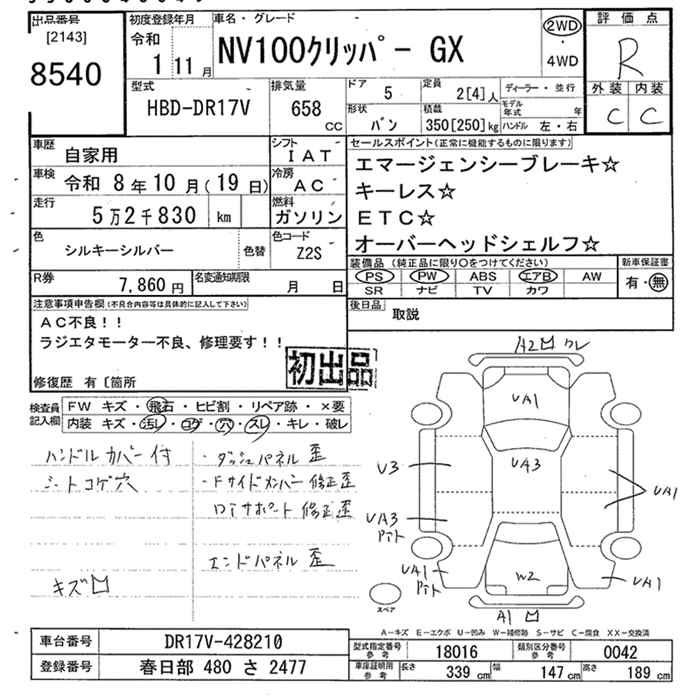 出品番号
[2143]
8540
初度登録年月
令和
1 11月
車名・グレード
NV100クリッパー GX
2WD
・
4WD
評価点
R
外装 内装
C C
型式
HBD-DR17V
排気量
658 cc
ドア 5
形状 バン
定員 2[4]人
積載 350[250]kg
ディーラー・並行
モデル年式 年
ハンドル 左・右
車歴 自家用
シフト IAT
車検 令和 8年10月(19日)
冷房 AC
走行 5万2千830 km
燃料 ガソリン
色 シルキーシルバー 色替
色コード Z2S
R券 7,860円
名変通知期限 月 日
セールスポイント(正常に機能するものに限ります)
エマージェンシーブレーキ☆
キーレス☆
ETC☆
オーバーヘッドシェルフ☆
装備品(純正品に限り○をつけてください)
PS PW ABS エアB AW
SR ナビ TV カワ
新車保証書
有・無
後日品 取説
注意事項申告欄(不良合内容等は具体的に記入して下さい)
AC不良!!
ラジエタモーター不良、修理要す!!
修復歴 有〔箇所
初出品
検査員記入欄
FW キズ・飛石・ヒビ割・リペア跡・×要
内装 キズ・汚レ・コゲ・穴・スレ・キレ・破レ
ハンドルカバー付
シートコゲ穴
キズ凹
・ダッシュパネル 歪
・Fサイドメンバー 修正歪
サポート 修正歪
エンドパネル 歪
A2凹 ワレ
UA1
UA3
U3
UA3
UA1
UA1
UA1
W2
A1凹
スペア
A-キズ E-エクボ U-凹み W-補修跡 S-サビ C-腐食 XX-交換済
車台番号 DR17V-428210
登録番号 春日部 480 さ 2477
型式指定番号 参考 18016
類別区分番号 参考 0042
車庫証明用 参考
長さ 339 cm 幅 147 cm 高さ 189 cm